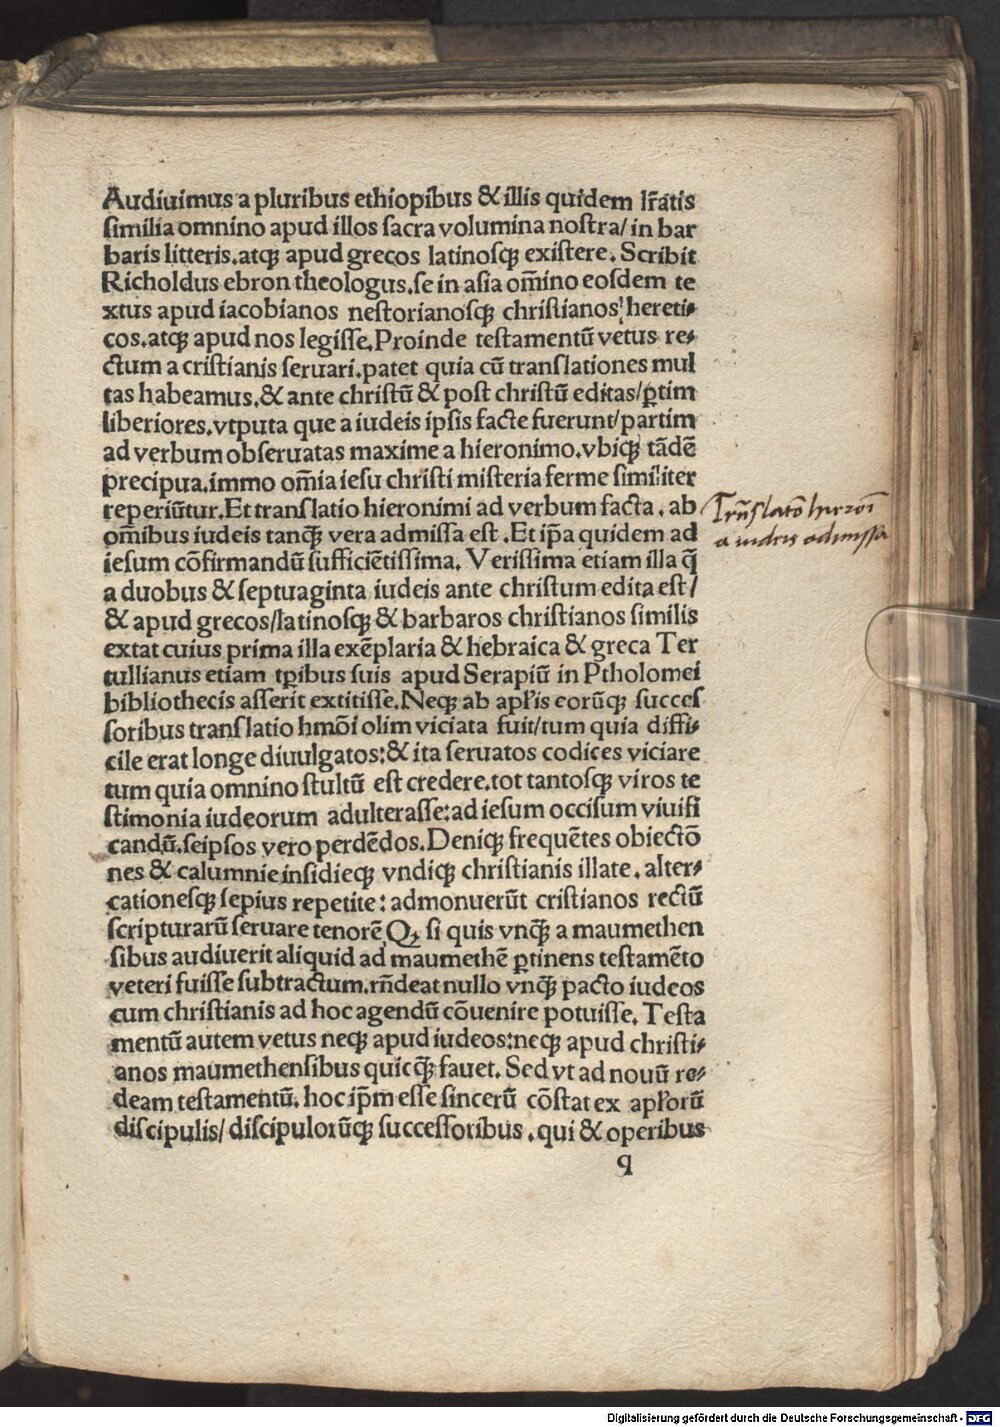 Audiuimus a pluribus ethiopibus & illis quidem lr̃atis
ſimilia omnino apud illos ſacra volumina noſtra/ in bar
baris litteris.atq; apud grecos latinoſq; exiſtere. Scribit
Richoldus ebron theologus.ſe in aſia om̃ino eoſdem te
xtus apud iacobianos neſtorianoſq; chriſtianos: hereti-
cos.atq; apud nos legiſſe.Proinde teſtamentū vetus re-
ctum a criſtianis ſeruari.patet quia cū tranſlationes mul
tas habeamus.& ante chriſtū & poſt chriſtū editas/ ꝑtim
liberiores.vtputa que a iudeis ipſis facte fuerunt/ partim
ad verbum obſeruatas maxime a hieronimo.vbiq; tādē
precipua.immo om̃ia ieſu chriſti miſteria ferme ſimiliter
reperiūtur.Et tranſlatio hieronimi ad verbum facta. ab
om̃ibus iudeis tanq̄; vera admiſſa eſt. Et ip̃a quidem ad
ieſum cōfirmandū ſufficiētiſſima. Veriſſima etiam illa q̄
a duobus & ſeptuaginta iudeis ante chriſtum edita eſt/
& apud grecos/latinoſq; & barbaros chriſtianos ſimilis
extat cuius prima illa exēplaria & hebraica & greca Ter
tullianus etiam tꝑibus ſuis apud Serapiū in Ptholomei
bibliothecis aſſerit extitiſſe.Neq; ab apl̃is eorūq; ſucceſ
ſoribus tranſlatio hmōi olim viciata fuit/tum quia diffi-
cile erat longe diuulgatos:& ita ſeruatos codices viciare
tum quia omnino ſtultū eſt credere.tot tantoſq; viros te
ſtimonia iudeorum adulteraſſe:ad ieſum occiſum viuifi
candū.ſeipſos vero perdēdos.Deniq; frequētes obiectō
nes & calumnie inſidieq; vndiq; chriſtianis illate. alter-
cationeſq; ſepius repetite: admonuerūt criſtianos rectū
ſcripturarū ſeruare tenorē Q ſi quis vnq̄; a maumethen
ſibus audiuerit aliquid ad maumethē ꝑtinens teſtamēto
veteri fuiſſe ſubtractum.rñdeat nullo vnq̄; pacto iudeos
cum chriſtianis ad hoc agendū cōuenire potuiſſe. Teſta
mentū autem vetus neq; apud iudeos:neq; apud chriſti-
anos maumethenſibus quicq̄; fauet. Sed vt ad nouū re-
deam teſtamentū. hoc ip̃m eſſe ſincerū cōſtat ex apl̃orū
diſcipulis/ diſcipulorūq; ſucceſſoribus .qui & operibus
q
Trãſlatō hieroĩ
a iudeis admiſſa
Digitalisierung gefördert durch die Deutsche Forschungsgemeinschaft - DFG